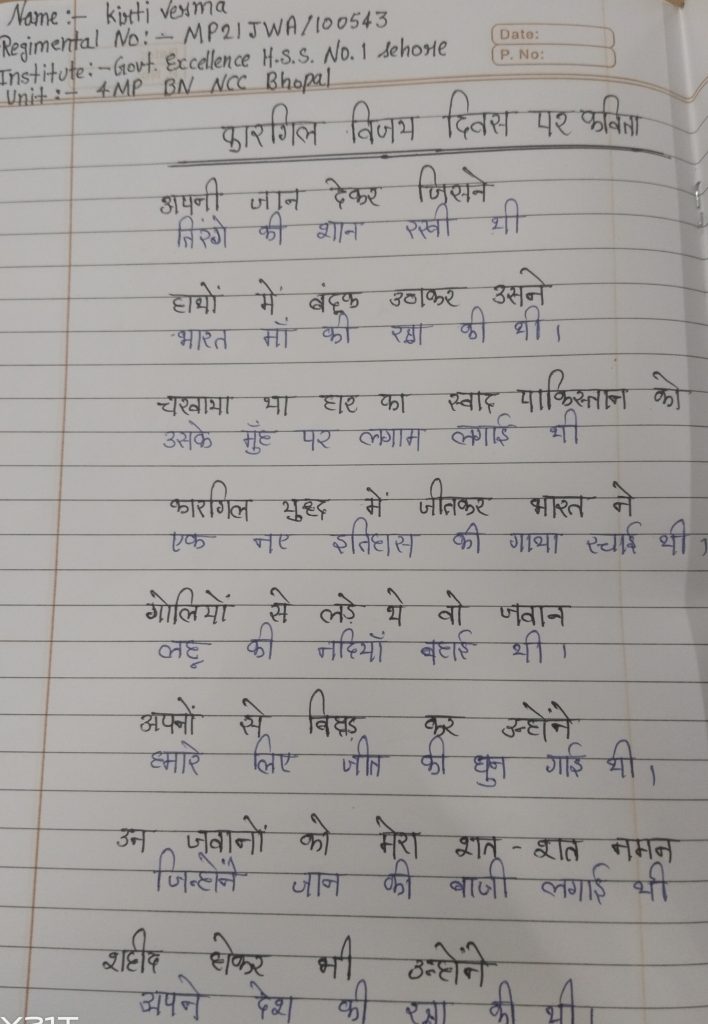 Name:- Kirti Verma
Regimental No:- MP21JWA/100543
Institute:- Govt. Excellence H.S.S. No. 1 Sehore
Unit:- 4MP BN NCC Bhopal
Date:
P. No:
कारगिल विजय दिवस पर कविता
अपनी जान देकर जिसने
तिरंगे की शान रखी थी
हाथों में बंदूक उठाकर उसने
भारत माँ की रक्षा की थी।
चखाया था हार का स्वाद पाकिस्तान को
उसके मुँह पर लगाम लगाई थी
कारगिल युध्द में जीतकर भारत ने
एक नए इतिहास की गाथा रचाई थी।
गोलियों से लड़े थे वो जवान
लहू की नदियाँ बहाई थी।
अपनों से बिछड़ कर उन्होंने
हमारे लिए जीत की धुन गाई थी।
उन जवानों को मेरा शत-शत नमन
जिन्होंने जान की बाजी लगाई थी
शहीद होकर भी उन्होंने
अपने देश की रक्षा की थी।